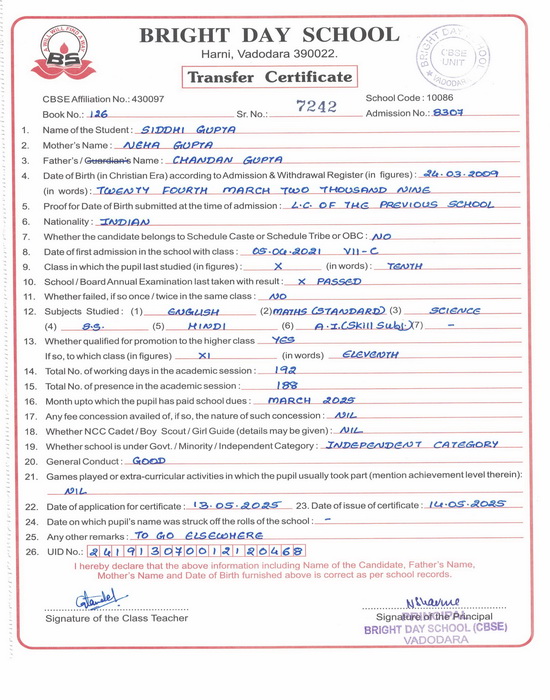 BRIGHT DAY SCHOOL
Harni, Vadodara 390022.
Transfer Certificate
BRIGHT DAY SCHOOL
CBSE
UNIT
VADODARA
BS
CBSE Affiliation No.: 430097 School Code : 10086
Book No.: 126 Sr. No.: 7242 Admission No.: 8307
1. Name of the Student : SIDDHI GUPTA
2. Mother's Name : NEHA GUPTA
3. Father's / Guardian's Name : CHANDAN GUPTA
4. Date of Birth (in Christian Era) according to Admission & Withdrawal Register (in figures) : 24.03.2009
(in words) : TWENTY FOURTH MARCH TWO THOUSAND NINE
5. Proof for Date of Birth submitted at the time of admission : L.C. OF THE PREVIOUS SCHOOL
6. Nationality : INDIAN
7. Whether the candidate belongs to Schedule Caste or Schedule Tribe or OBC : NO
8. Date of first admission in the school with class : 05.04.2021 VII-C
9. Class in which the pupil last studied (in figures) : X (in words) : TENTH
10. School / Board Annual Examination last taken with result : X PASSED
11. Whether failed, if so once / twice in the same class : NO
12. Subjects Studied : (1) ENGLISH (2) MATHS (STANDARD) (3) SCIENCE
(4) S.S. (5) HINDI (6) A.I.(Skill Subj.) (7) -
13. Whether qualified for promotion to the higher class YES
If so, to which class (in figures) XI (in words) ELEVENTH
14. Total No. of working days in the academic session : 192
15. Total No. of presence in the academic session : 188
16. Month upto which the pupil has paid school dues : MARCH 2025
17. Any fee concession availed of, if so, the nature of such concession : NIL
18. Whether NCC Cadet / Boy Scout / Girl Guide (details may be given) : NIL
19. Whether school is under Govt. / Minority / Independent Category : INDEPENDENT CATEGORY
20. General Conduct : GOOD
21. Games played or extra-curricular activities in which the pupil usually took part (mention achievement level therein):
NIL
22. Date of application for certificate : 13.05.2025 23. Date of issue of certificate : 14.05.2025
24. Date on which pupil's name was struck off the rolls of the school : -
25. Any other remarks : TO GO ELSEWHERE
26. UID No.: 241913070012120468
I hereby declare that the above information including Name of the Candidate, Father's Name,
Mother's Name and Date of Birth furnished above is correct as per school records.
Signature of the Class Teacher Signature of the Principal
PRINCIPAL
BRIGHT DAY SCHOOL (CBSE)
VADODARA